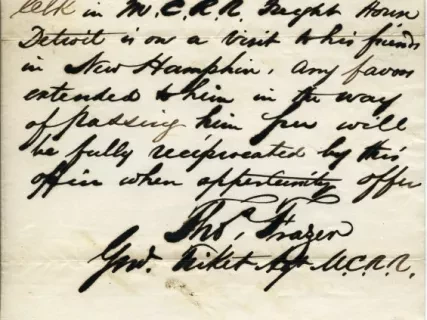 clerk in M.C.R.R. Freight House
Detroit is on a visit to his friends
in New Hampshire, any favors
extended to him in the way
of passing him free will
be fully reciprocated by this
office when oppertunity offer
Thos. Frazer
Genl. Ticket Agt M.C.R.R.